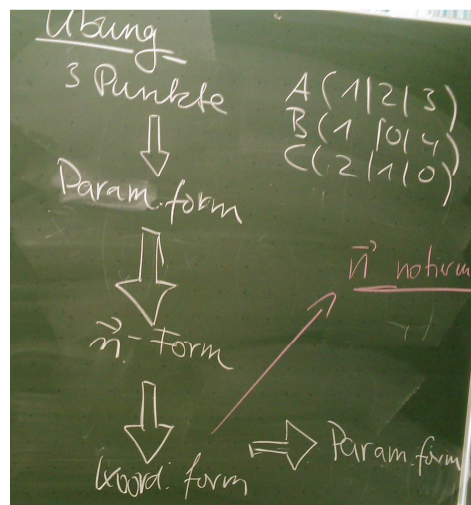 Übung
3 Punkte
A(1|2|3)
B(1|0|4)
C(2|1|0)
Param.form
n⃗ notieren
n⃗-Form
Koord.form
Param.form